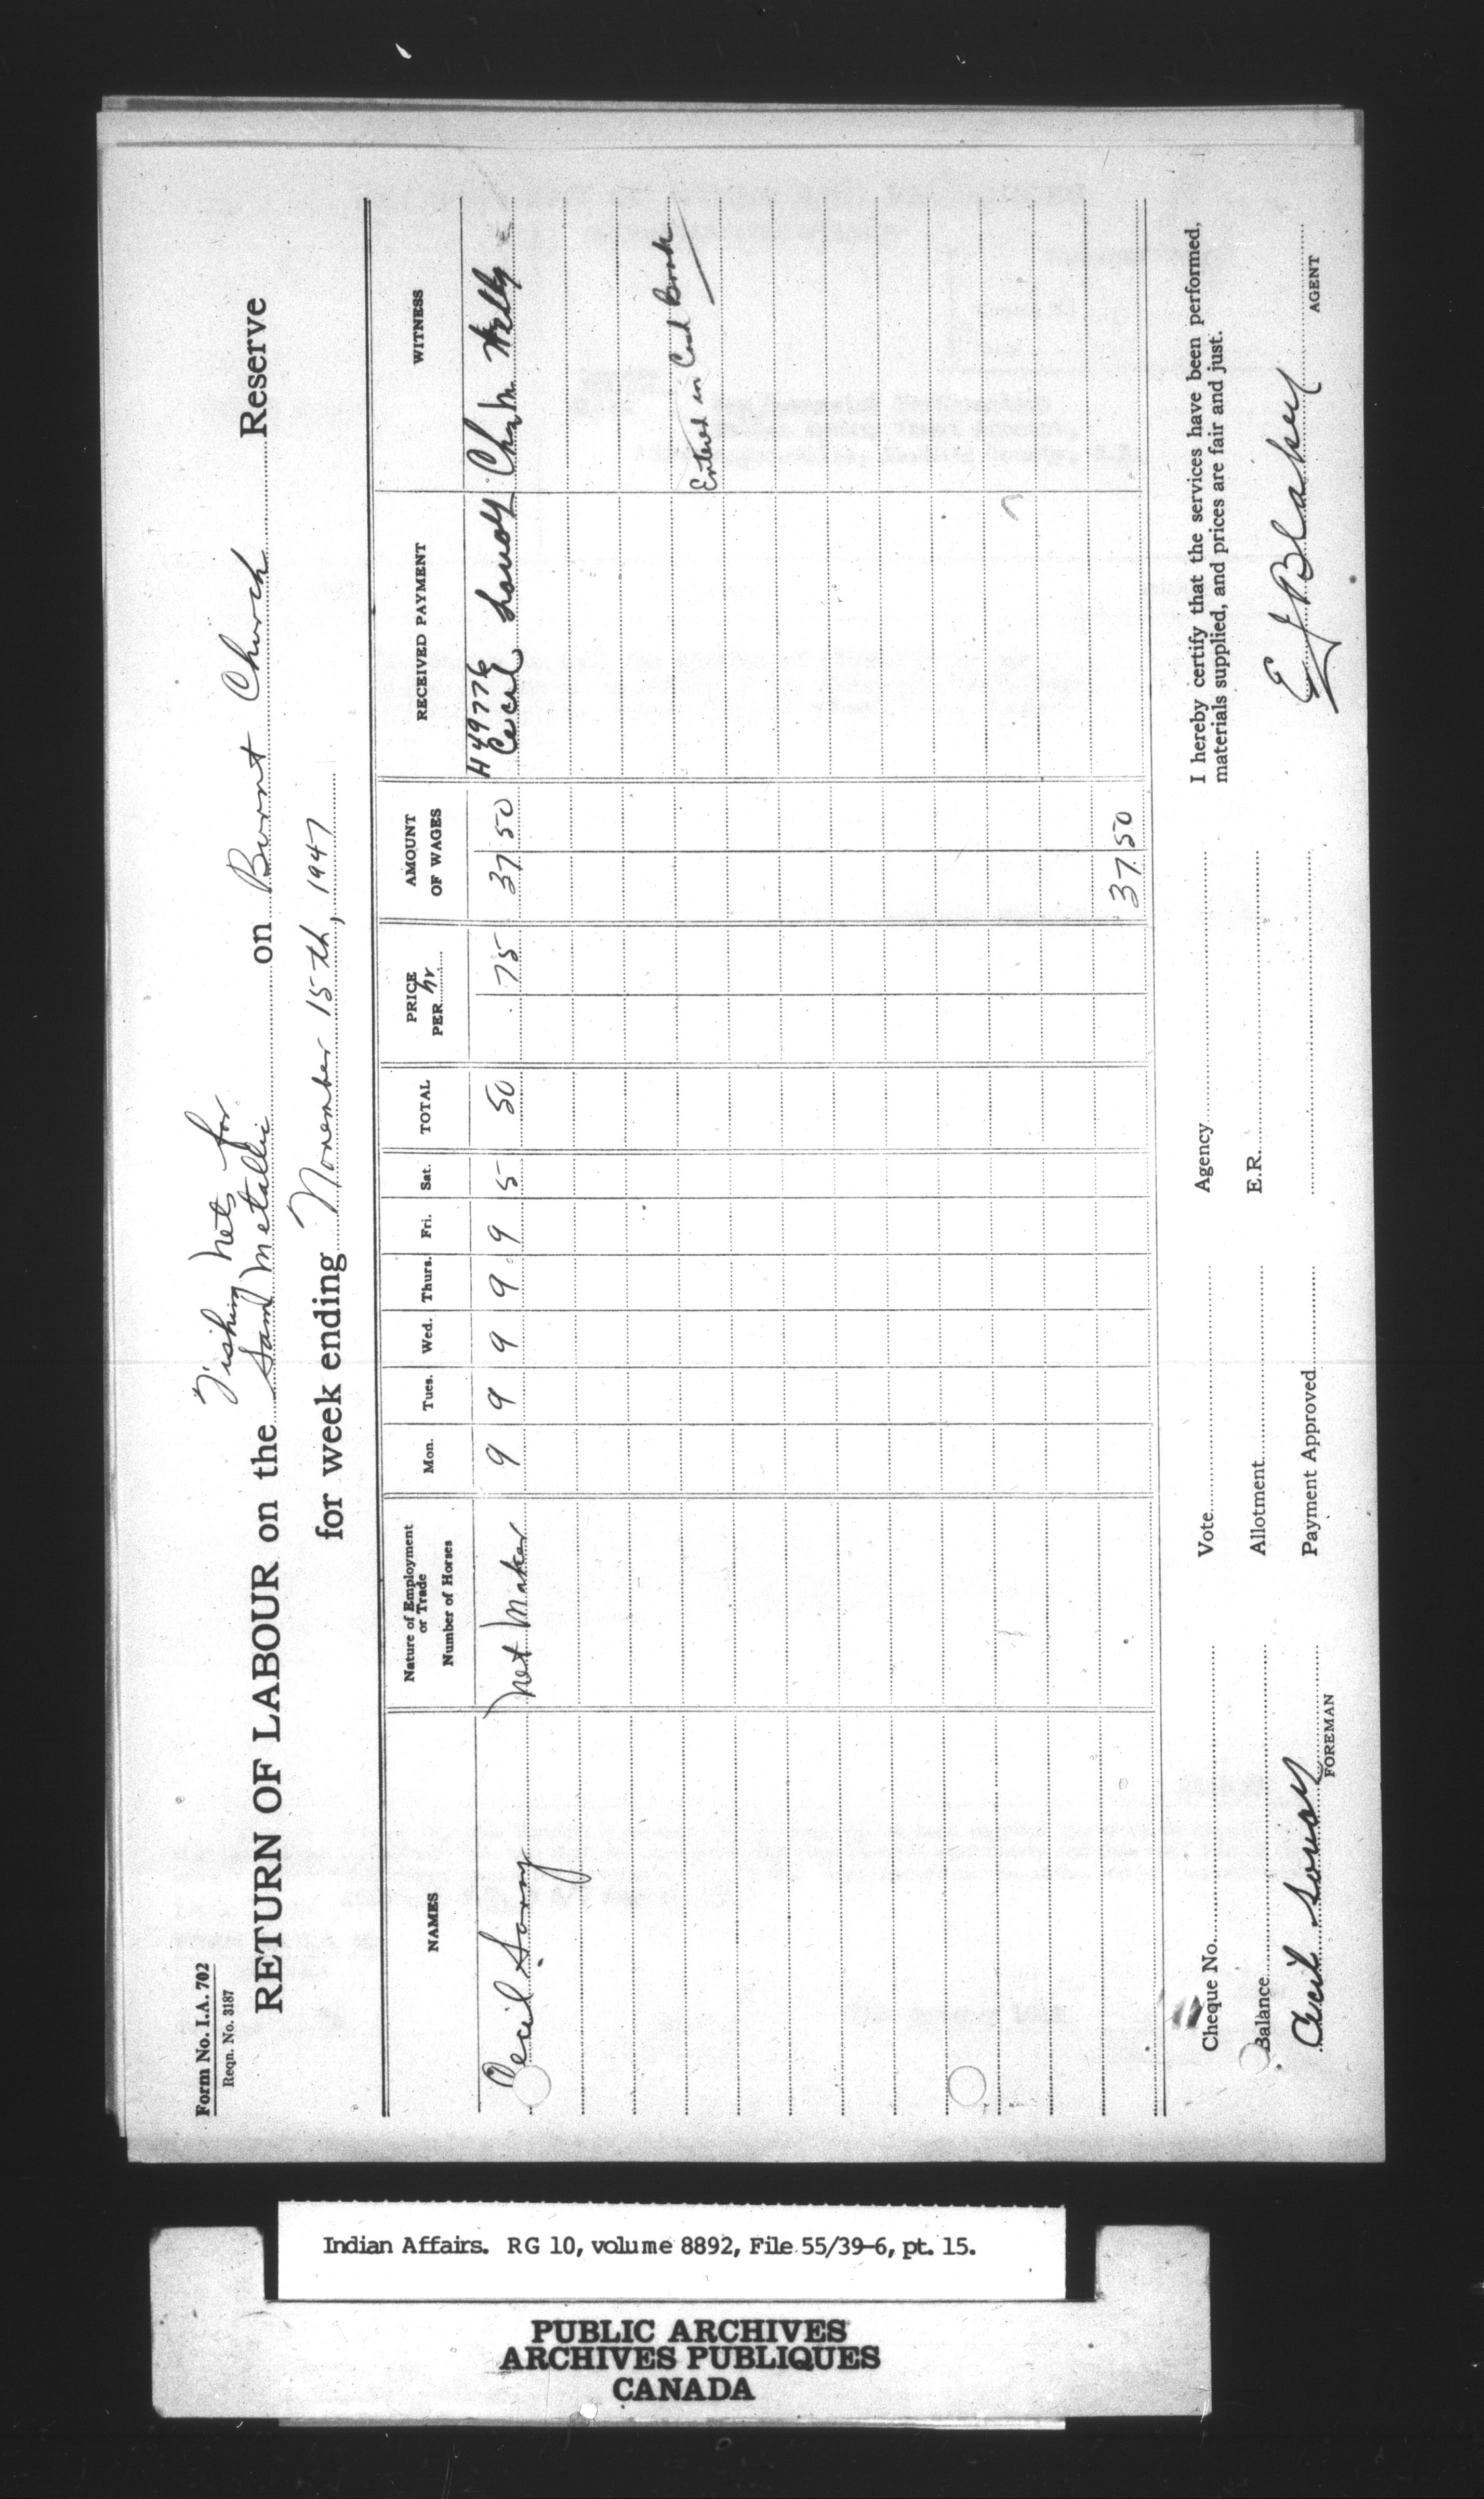 Form No. I.A. 702
Reqn. No. 3187
Fishing Nets for
RETURN OF LABOUR on the Sam Metallic on Burnt Church Reserve
for week ending November 15th, 1947
NAMES Nature of Employment or Trade Number of Horses Mon. Tues. Wed. Thurs. Fri. Sat. TOTAL PRICE PER hr AMOUNT OF WAGES RECEIVED PAYMENT WITNESS
H49776
Cecil Net Maker 9 9 9 9 9 5 50 75 37 50 Cecil
Entered in Cash Book
37 50
Cheque No. Vote Agency I hereby certify that the services have been performed,
materials supplied, and prices are fair and just.
Balance Allotment E.R.
Cecil Payment Approved E J Blakey
FOREMAN AGENT
Indian Affairs. RG 10, volume 8892, File 55/39-6, pt. 15.
PUBLIC ARCHIVES
ARCHIVES PUBLIQUES
CANADA